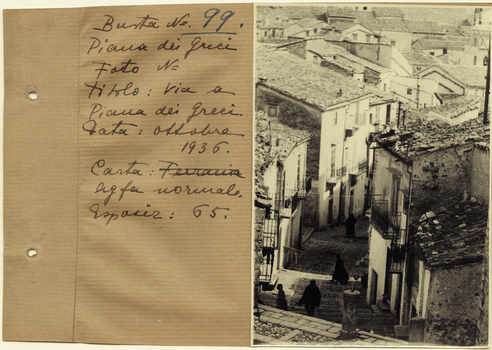 Busta No. 99.
Piana dei Greci
Foto No
Titolo: Via a
Piana dei Greci.
Data: ottobre
1936.
Carta: Ferrania
agfa normale.
Esposiz: 65.